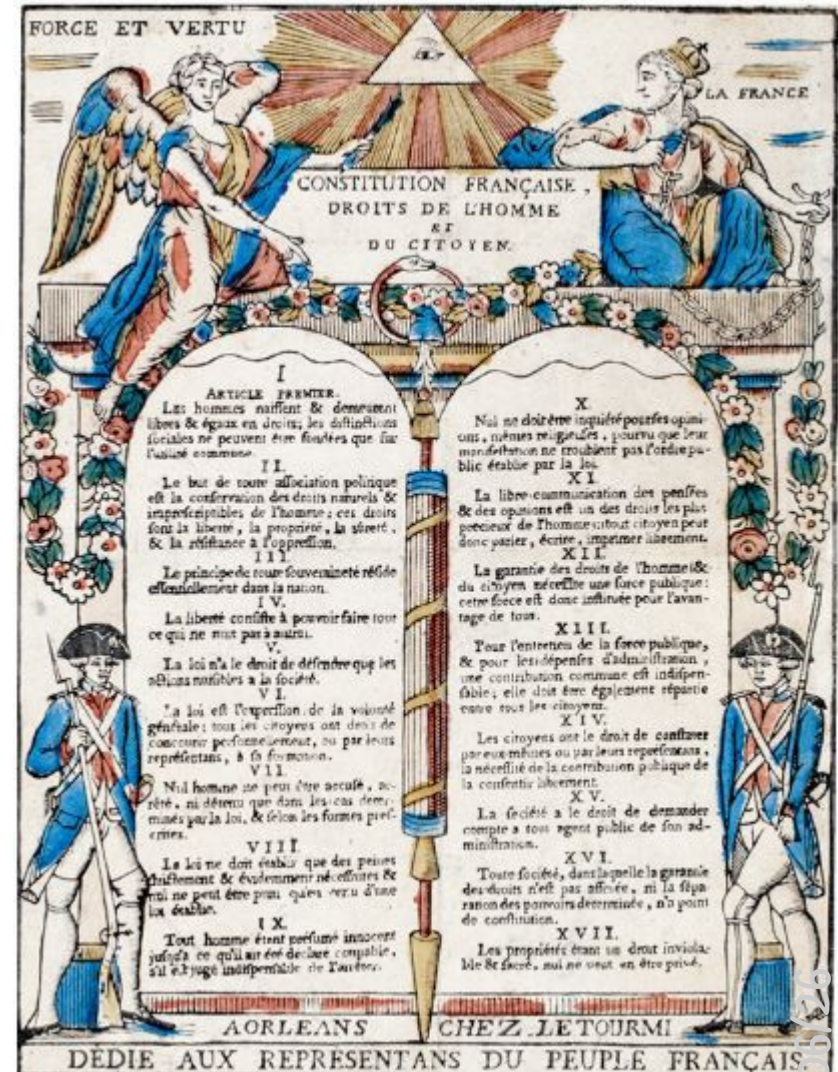 FORCE ET VERTU
LA FRANCE
CONSTITUTION FRANÇAISE,
DROITS DE L'HOMME
ET
DU CITOYEN.
I
ARTICLE PREMIER.
Les hommes naissent & demeurent
libres & égaux en droits; les distinctions
sociales ne peuvent être fondées que sur
l'utilité commune.
II.
Le but de toute association politique
est la conservation des droits naturels &
imprescriptibles de l'homme; ces droits
sont la liberté, la propriété, la sûreté,
& la résistance à l'oppression.
III.
Le principe de toute souveraineté réside
essentiellement dans la nation.
IV.
La liberté consiste à pouvoir faire tout
ce qui ne nuit pas à autrui.
V.
La loi n'a le droit de défendre que les
actions nuisibles a la société.
VI.
La loi est l'expression de la volonté
générale; tous les citoyens ont droit de
concourir personnellement, ou par leurs
représentans, à sa formation.
VII.
Nul homme ne peut être accusé, ar-
rêté, ni détenu que dans les cas déter-
minés par la loi, & selon les formes pres-
crites.
VIII.
La loi ne doit établir que des peines
strictement & évidemment nécessaires &
nul ne peut être puni qu'en vertu d'une
loi établie.
IX.
Tout homme étant présumé innocent
jusqu'a ce qu'il ait été déclaré coupable,
s'il est jugé indispensable de l'arrêter.
X.
Nul ne doit être inquiété pour ses opini-
ons, mêmes religieuses, pourvu que leur
manifestation ne troublent pas l'ordre pu-
blic établie par la loi.
XI.
La libre communication des pensées
& des opinions est un des droits les plus
précieux de l'homme: tout citoyen peut
donc parler, écrire, imprimer librement.
XII.
La garantie des droits de l'homme &
du citoyen nécessite une force publique:
cette force est donc instituée pour l'avan-
tage de tous.
XIII.
Pour l'entretien de la force publique,
& pour les dépenses d'administration,
une contribution commune est indispen-
sable; elle doit être également répartie
entre tous les citoyens.
XIV.
Les citoyens ont le droit de constater
par eux-mêmes ou par leurs représentans,
la nécessité de la contribution publique de
la consentir librement.
XV.
La société a le droit de demander
compte a tous agent public de son ad-
ministration.
XVI.
Toute société, dans laquelle la garantie
des droits n'est pas assurée, ni la sépa-
ration des pouvoirs déterminée, n'a point
de constitution.
XVII.
Les propriétés étant un droit inviola-
ble & sacré, nul ne peut en être privé.
A ORLEANS CHEZ LETOURMI
DÉDIE AUX REPRESENTANS DU PEUPLE FRANÇAIS.